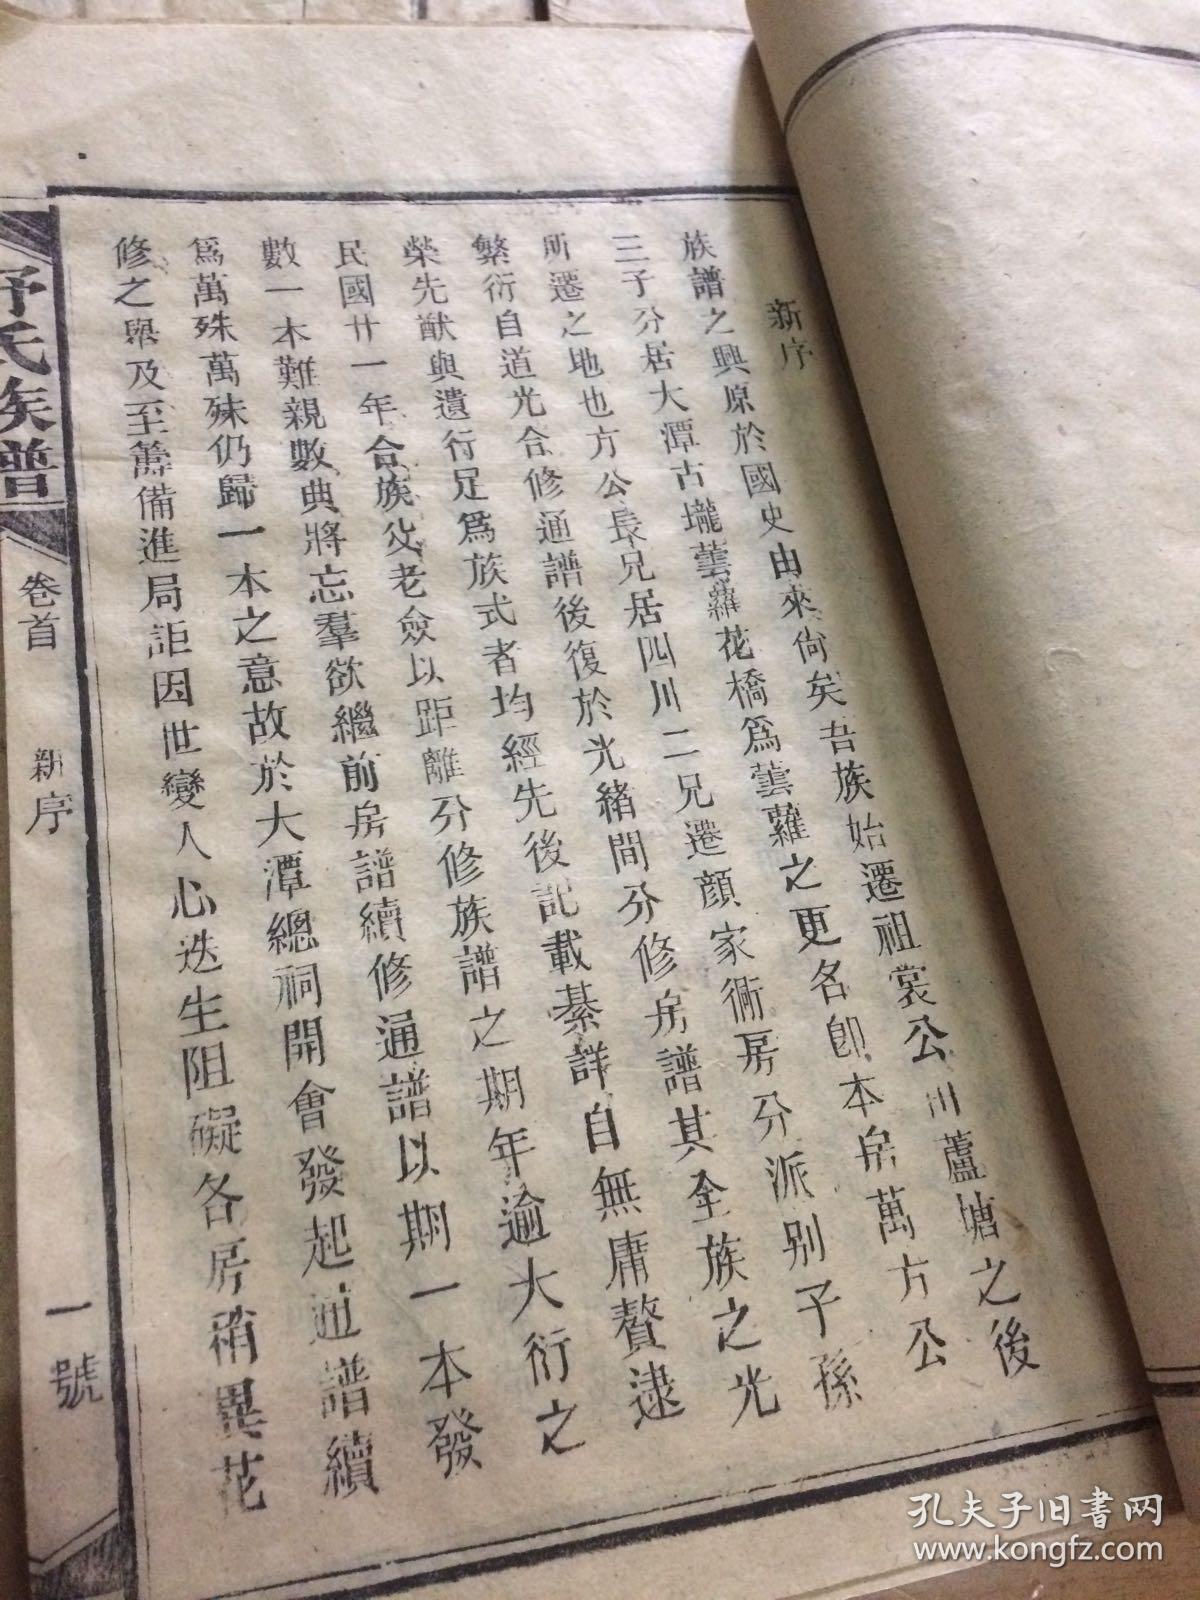 新序
族譜之興原於國史由來尙矣吾族始遷祖裳公川蘆塘之後
三子分居大潭古壠蕓蘿花橋爲蕓蘿之更名卽本房萬方公
所遷之地也方公長兄居四川二兄遷顔家衕房分派别子孫
繁衍自道光合修通譜後復於光緒間分修房譜其全族之光
榮先猷與遺行足爲族式者均經先後記載綦詳自無庸贅逮
民國廿一年合族父老僉以距離分修族譜之期年逾大衍之
數一本難親數典將忘羣欲繼前房譜續修通譜以期一本發
爲萬殊萬殊仍歸一本之意故於大潭總祠開會發起通譜續
修之舉及至籌備進局詎因世變人心迭生阻礙各房稍異花
舒氏族譜
卷首
新序
一號
孔夫子旧书网
www.kongfz.com